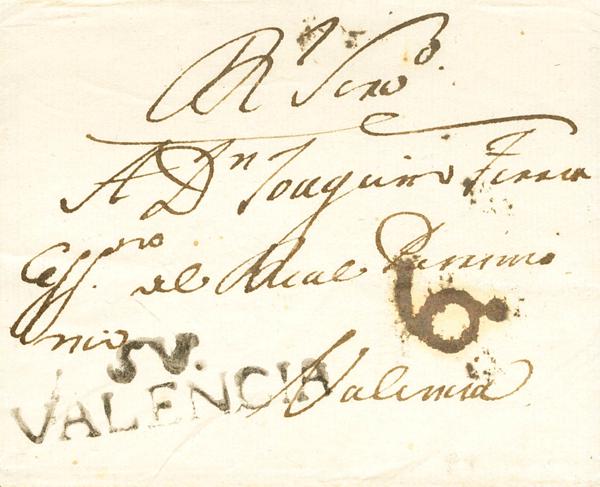 Rl Servo
A Dn Joaquin Ferrer
Essno del Real Patrimo
nio
Valencia
SV.
VALENCIA
6.